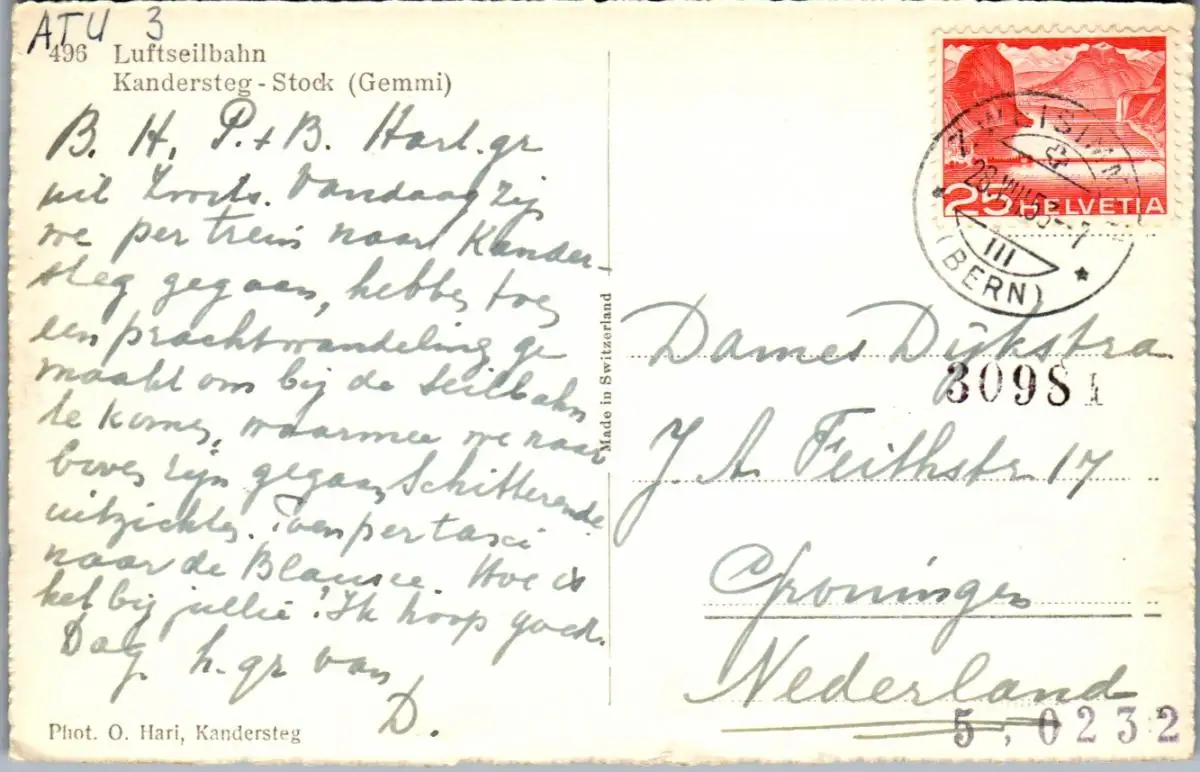 ATU 3
496 Luftseilbahn
Kandersteg - Stock (Gemmi)
B. H, P. + B. Hart. gr
uit Vandaag zijn
we per trein naar Kander-
steg gegaan, hebben toen
een prachtwandeling ge
maakt om bij de seilbahn
te komen, waarmee we naar
boven zijn gegaan, Schitterende
uitzichten. Toen per taxi
naar de Blausee. Hoe is
het bij jullie? Ik hoop goed.
Dag h. gr van
D.
Phot. O. Hari, Kandersteg
Made in Switzerland
25 HELVETIA
ZWEISIMMEN
28.VIII.53-7
III
(BERN)
Dames Dijkstra
30981
J A Feithstr 17
Groningen
Nederland
5,0232